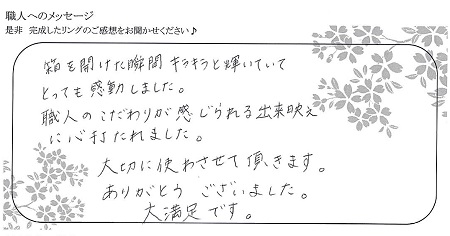 職人へのメッセージ
是非 完成したリングのご感想をお聞かせください♪
箱を開けた瞬間キラキラと輝いていて
とっても感動しました。
職人のこだわりが感じられる出来映え
に心打たれました。
大切に使わさせて頂きます。
ありがとう ございました。
大満足です。